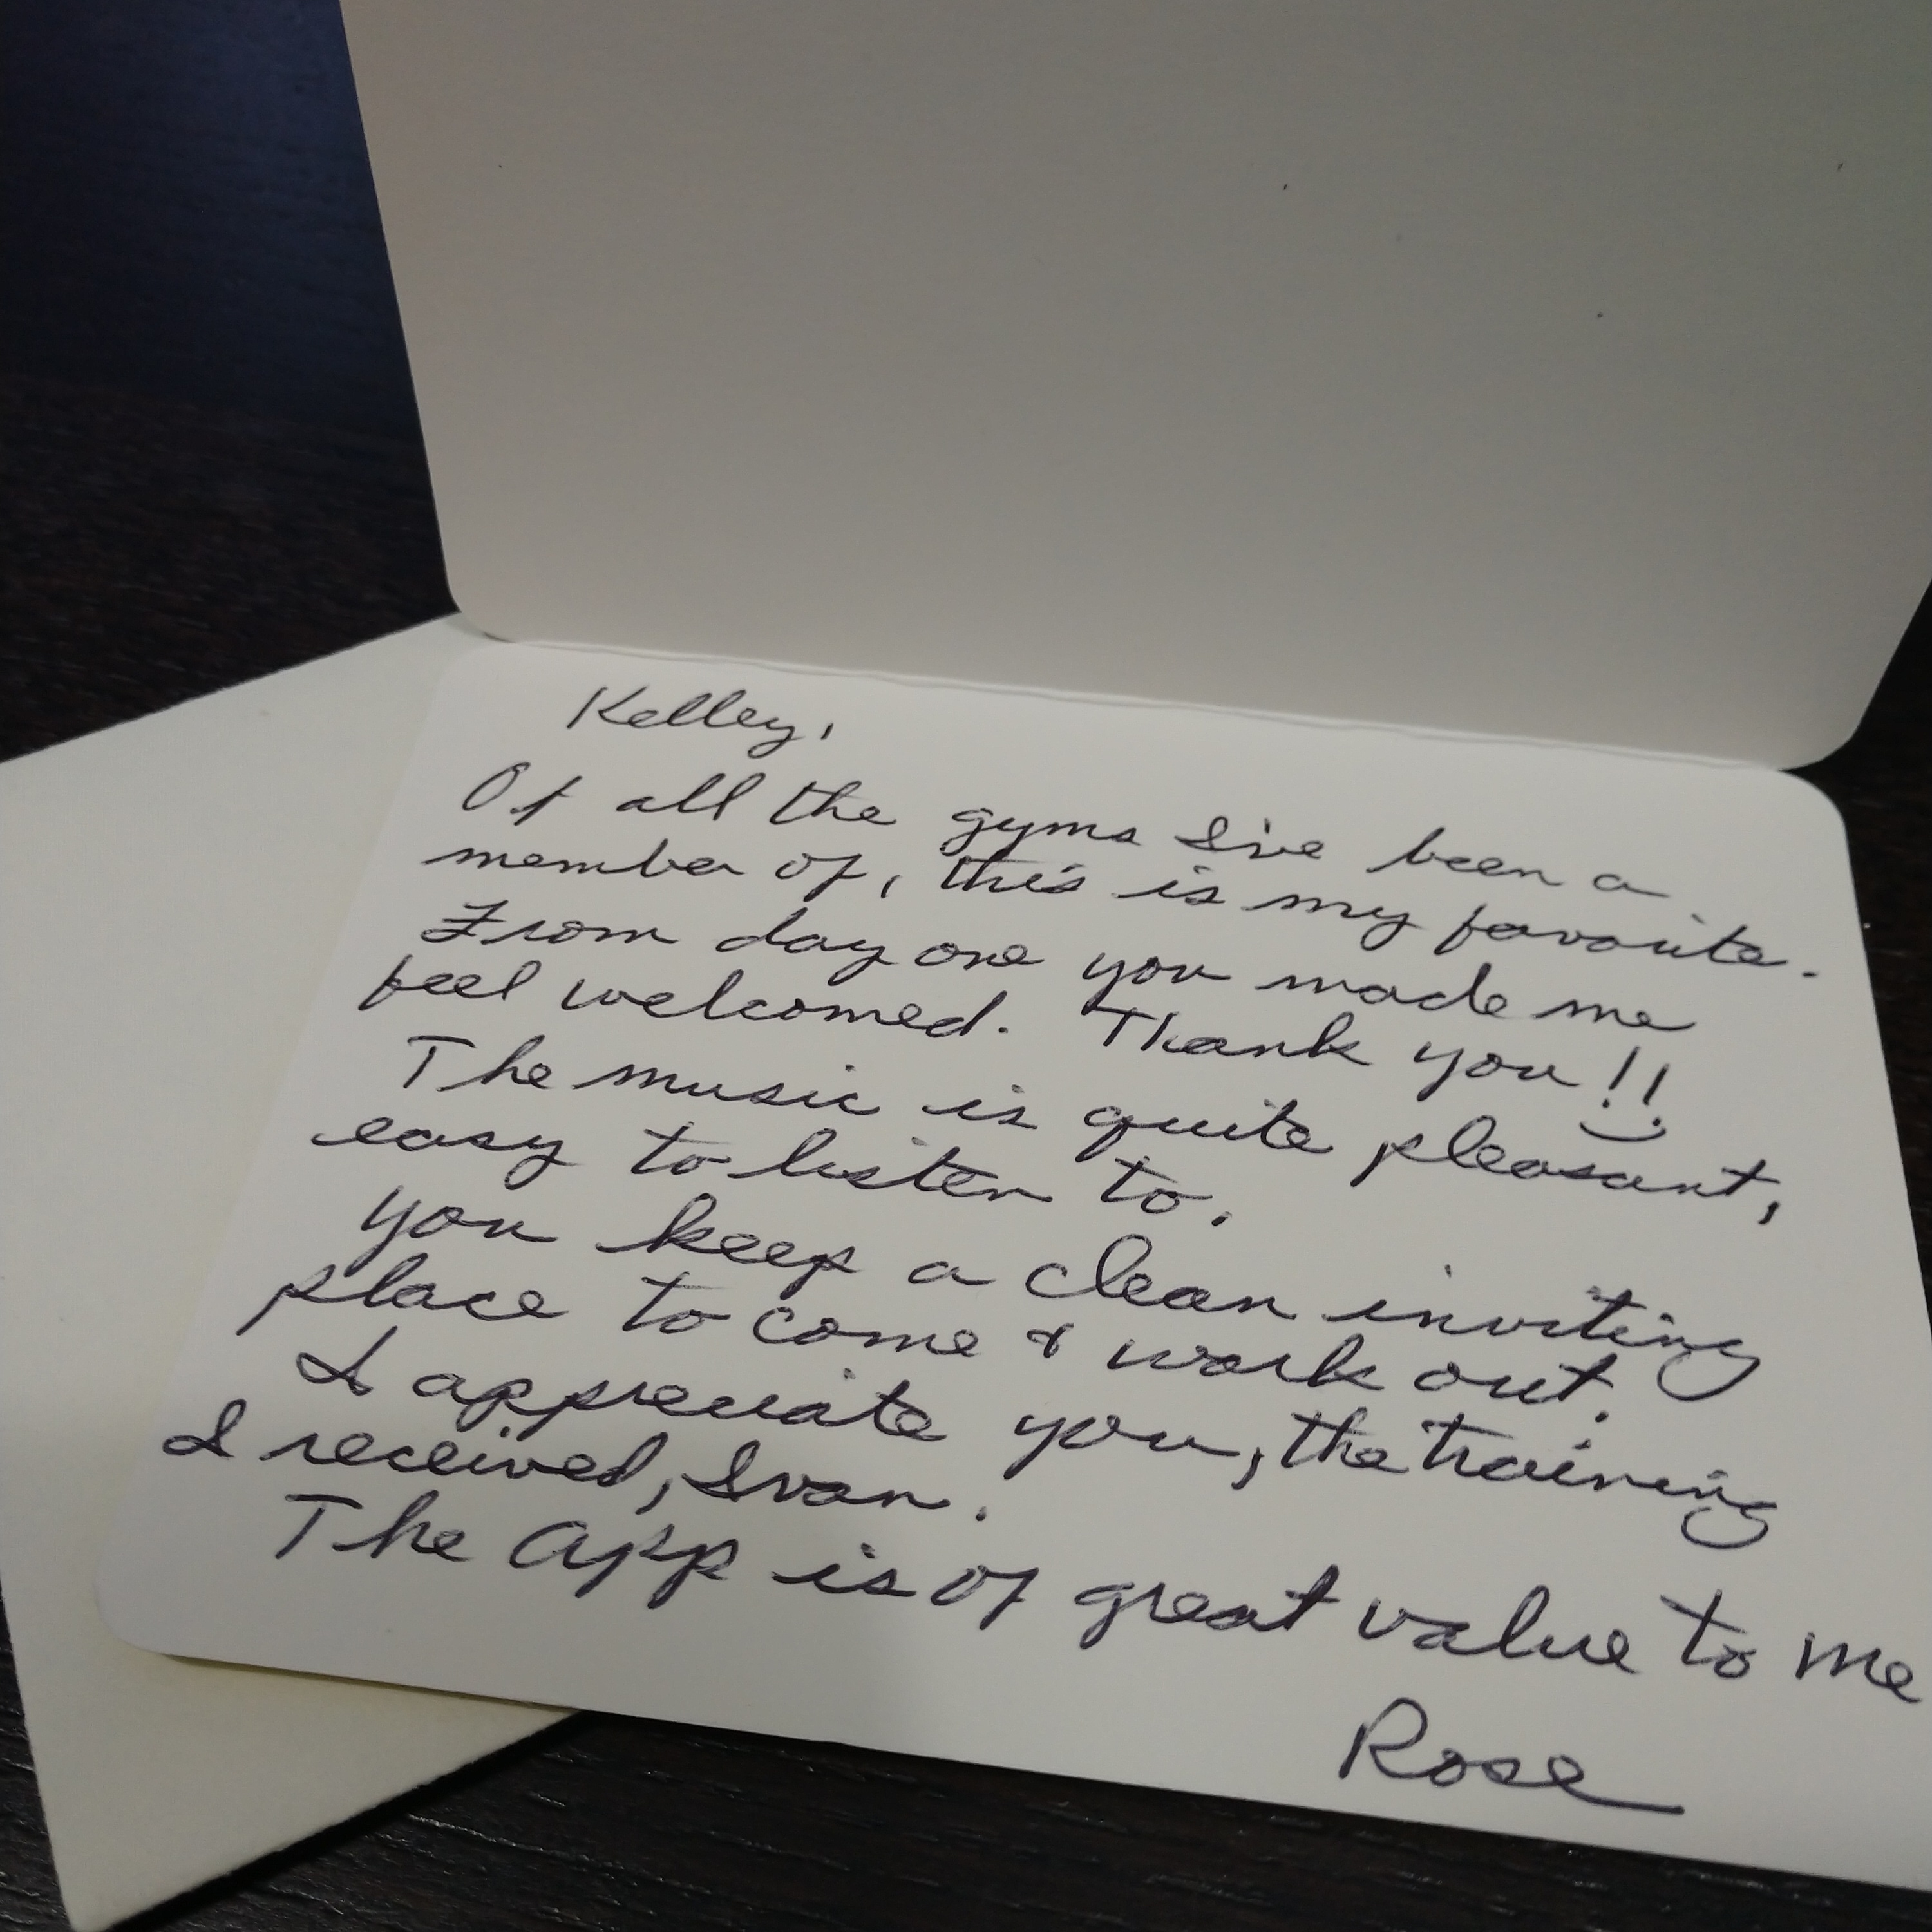 Kelley,
Of all the gyms I've been a
member of, this is my favorite.
From day one you made me
feel welcomed. Thank you!!
The music is quite pleasant,
easy to listen to.
You keep a clean inviting
place to come & work out.
I appreciate you, the training
I received, Ivan.
The App is of great value to me
Rose